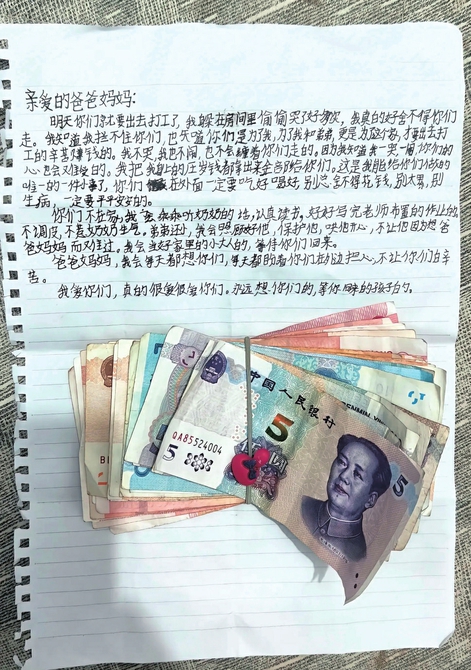 亲爱的爸爸妈妈:
明天你们就要出去打工了,我躲在房间里偷偷哭了好多次,我真的好舍不得你们
走。我知道我拦不住你们,也知道你们是为了我,为了我和弟弟,更是为这个家,才要出去打
工的辛苦赚钱的。我不哭,我也不闹,也不会缠着你们走的。因为我知道我一哭一闹,你们的
心也会难受的。我把我以上的压岁钱都拿出来全部给你们。这是我能给你们做的
唯一的一件小事了,你们在外面一定要吃好喝好,别总舍不得花钱,别太累,别
生病,一定要平平安安的。
你们不在家,我会听奶奶的话,认真读书。好好写完老师布置的作业的。
不调皮,不惹奶奶生气。弟弟还小,我会照顾好他,保护他,哄他开心,不让他因为想爸
爸妈妈而难过。我会当好家里的小大人的,等待你们回来。
爸爸妈妈,我会每天都想你们,每天都盼着你们,不让你们辛
苦。
我爱你们,真的很爱很爱你们。永远想你们的,等你回来的孩子们。
中国人民银行
5
QA85524004
5
5